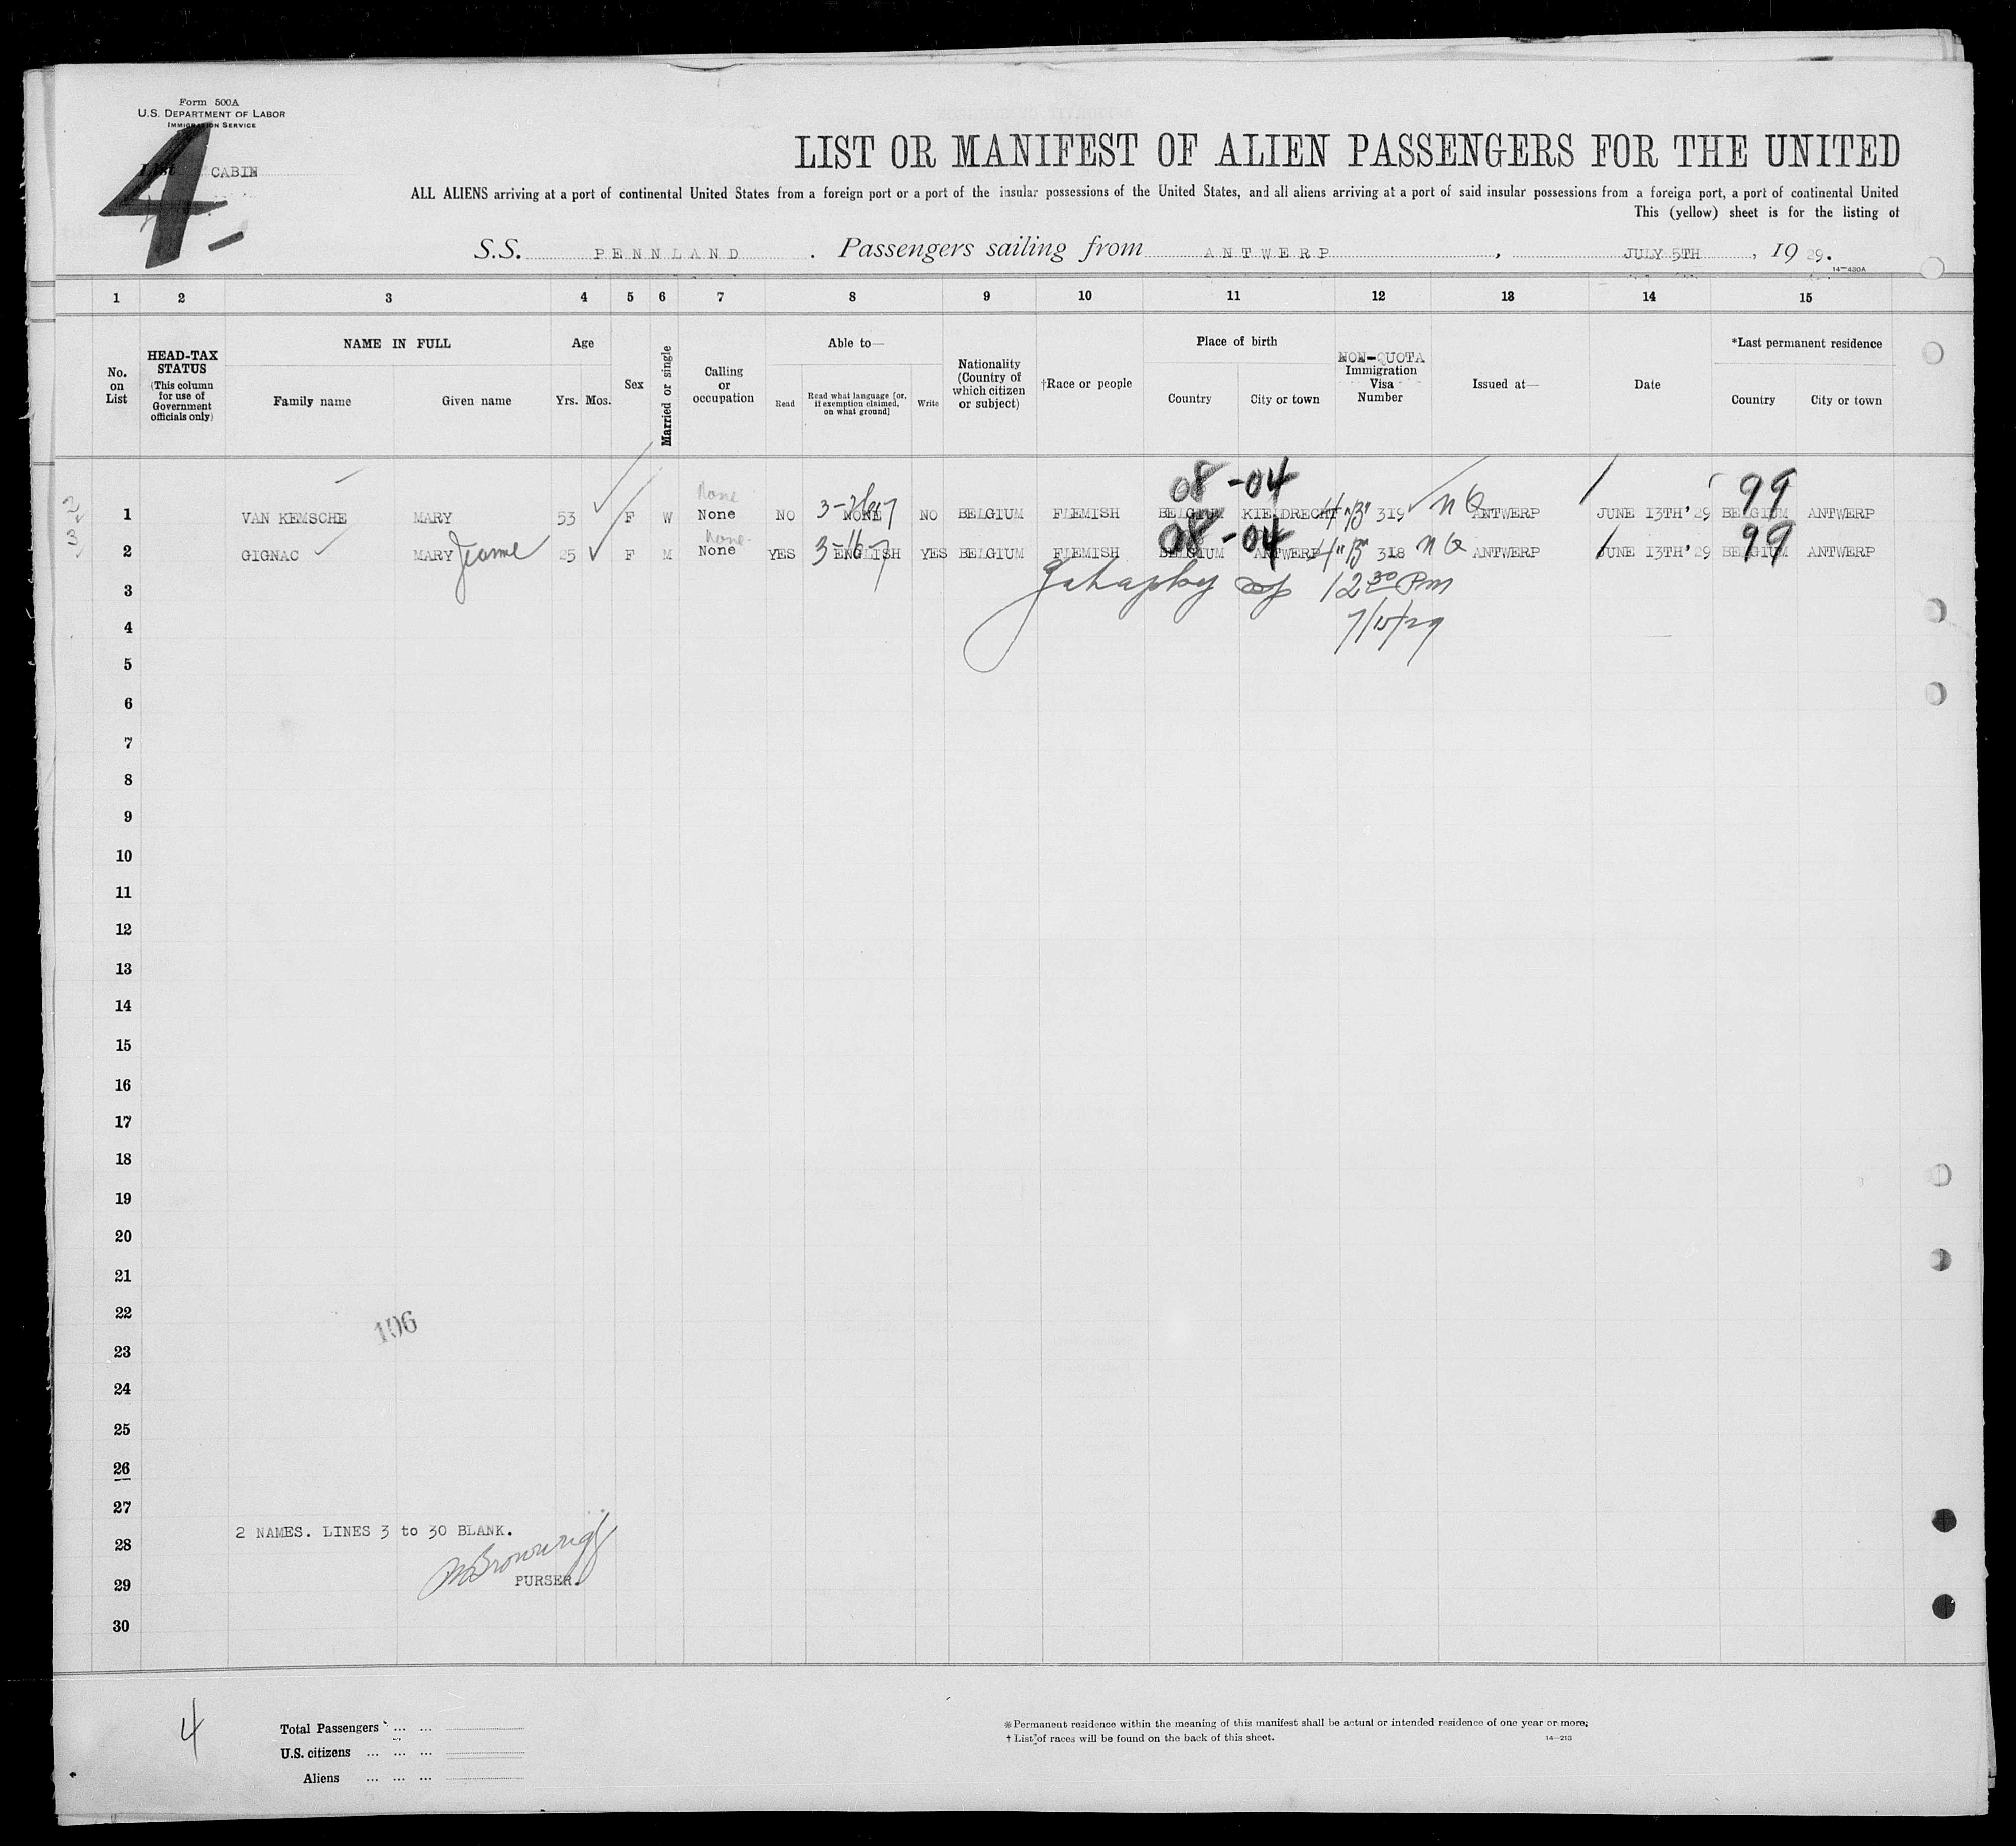 Form 500A
U.S. DEPARTMENT OF LABOR
IMMIGRATION SERVICE
4
List CABIN
LIST OR MANIFEST OF ALIEN PASSENGERS FOR THE UNITED
ALL ALIENS arriving at a port of continental United States from a foreign port or a port of the insular possessions of the United States, and all aliens arriving at a port of said insular possessions from a foreign port, a port of continental United
This (yellow) sheet is for the listing of
S.S. PENNLAND. Passengers sailing from ANTWERP, JULY 5TH, 19 29.
14—430A
1 2 3 4 5 6 7 8 9 10 11 12 13 14 15
No. on List
HEAD-TAX STATUS (This column for use of Government officials only)
NAME IN FULL
Family name Given name
Age
Yrs. Mos.
Sex
Married or single
Calling or occupation
Able to—
Read Read what language [or, if exemption claimed, on what ground] Write
Nationality (Country of which citizen or subject)
†Race or people
Place of birth
Country City or town
NON-QUOTA
Immigration Visa Number
Issued at—
Date
*Last permanent residence
Country City or town
None 08-04 99
1 VAN KEMSCHE MARY 53 F W None NO NONE NO BELGIUM FLEMISH BELGIUM KIELDRECHT 319 NQ ANTWERP JUNE 13TH'29 BELGIUM ANTWERP
None 08-04 99
2 GIGNAC MARY Jeanne 25 F M None YES ENGLISH YES BELGIUM FLEMISH BELGIUM ANTWERP 318 NQ ANTWERP JUNE 13TH'29 BELGIUM ANTWERP
3 12 30 Pm
4 7/15/29
5
6
7
8
9
10
11
12
13
14
15
16
17
18
19
20
21
22
106
23
24
25
26
27
2 NAMES. LINES 3 to 30 BLANK.
28
29 PURSER.
30
4
Total Passengers ... ...
U.S. citizens ... ... ...
Aliens ... ... ...
*Permanent residence within the meaning of this manifest shall be actual or intended residence of one year or more.
† List of races will be found on the back of this sheet.
14—213